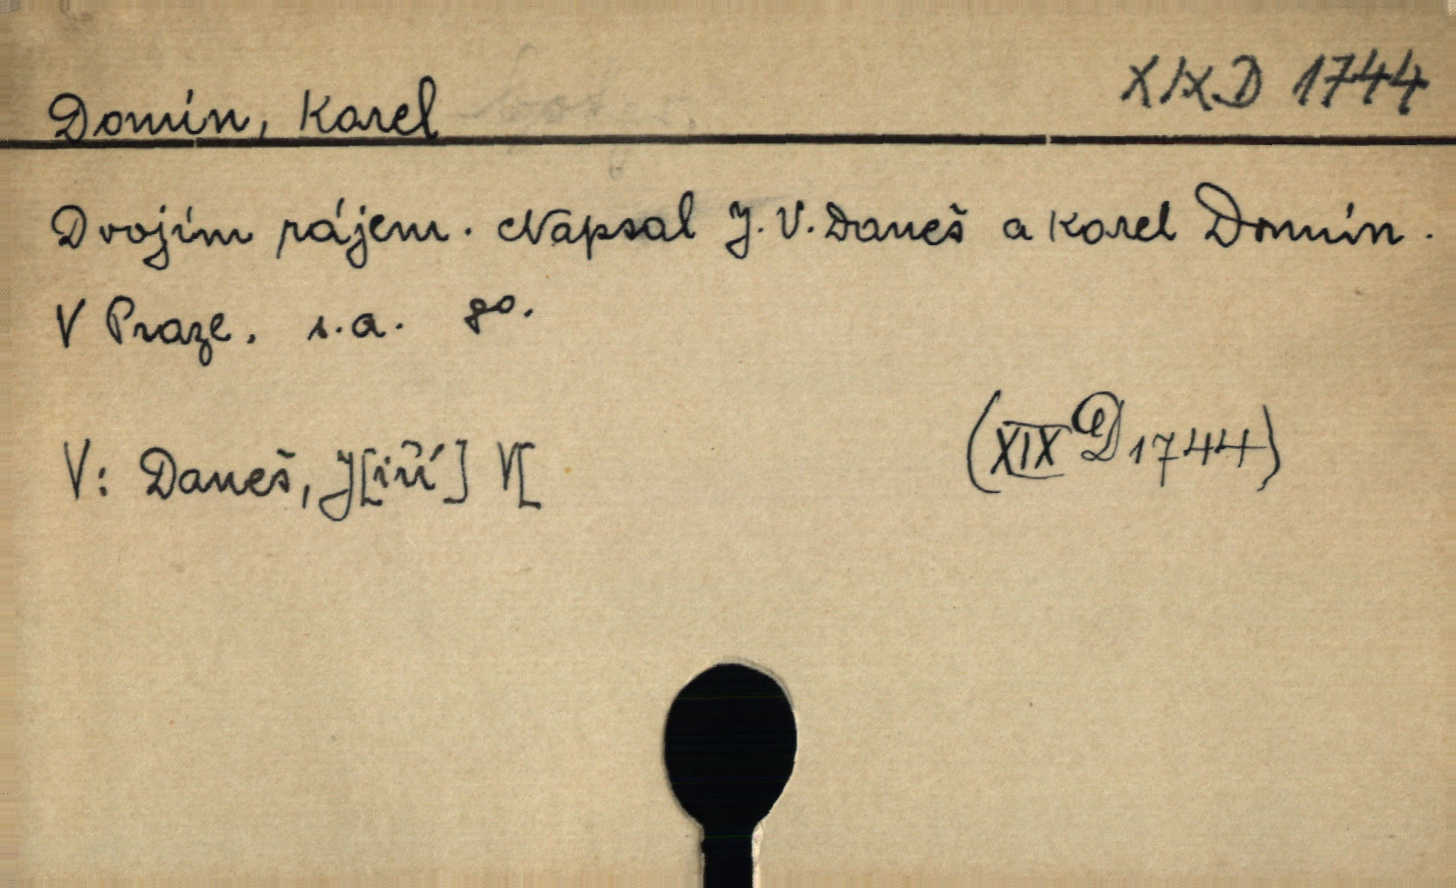 Domin, Karel XIX D 1744
Dvojím rájem. Napsal J. V. Daneš a Karel Domin.
V Praze. s.a. 8o.
(XIX D 1744)
V: Daneš, J[iří] V[